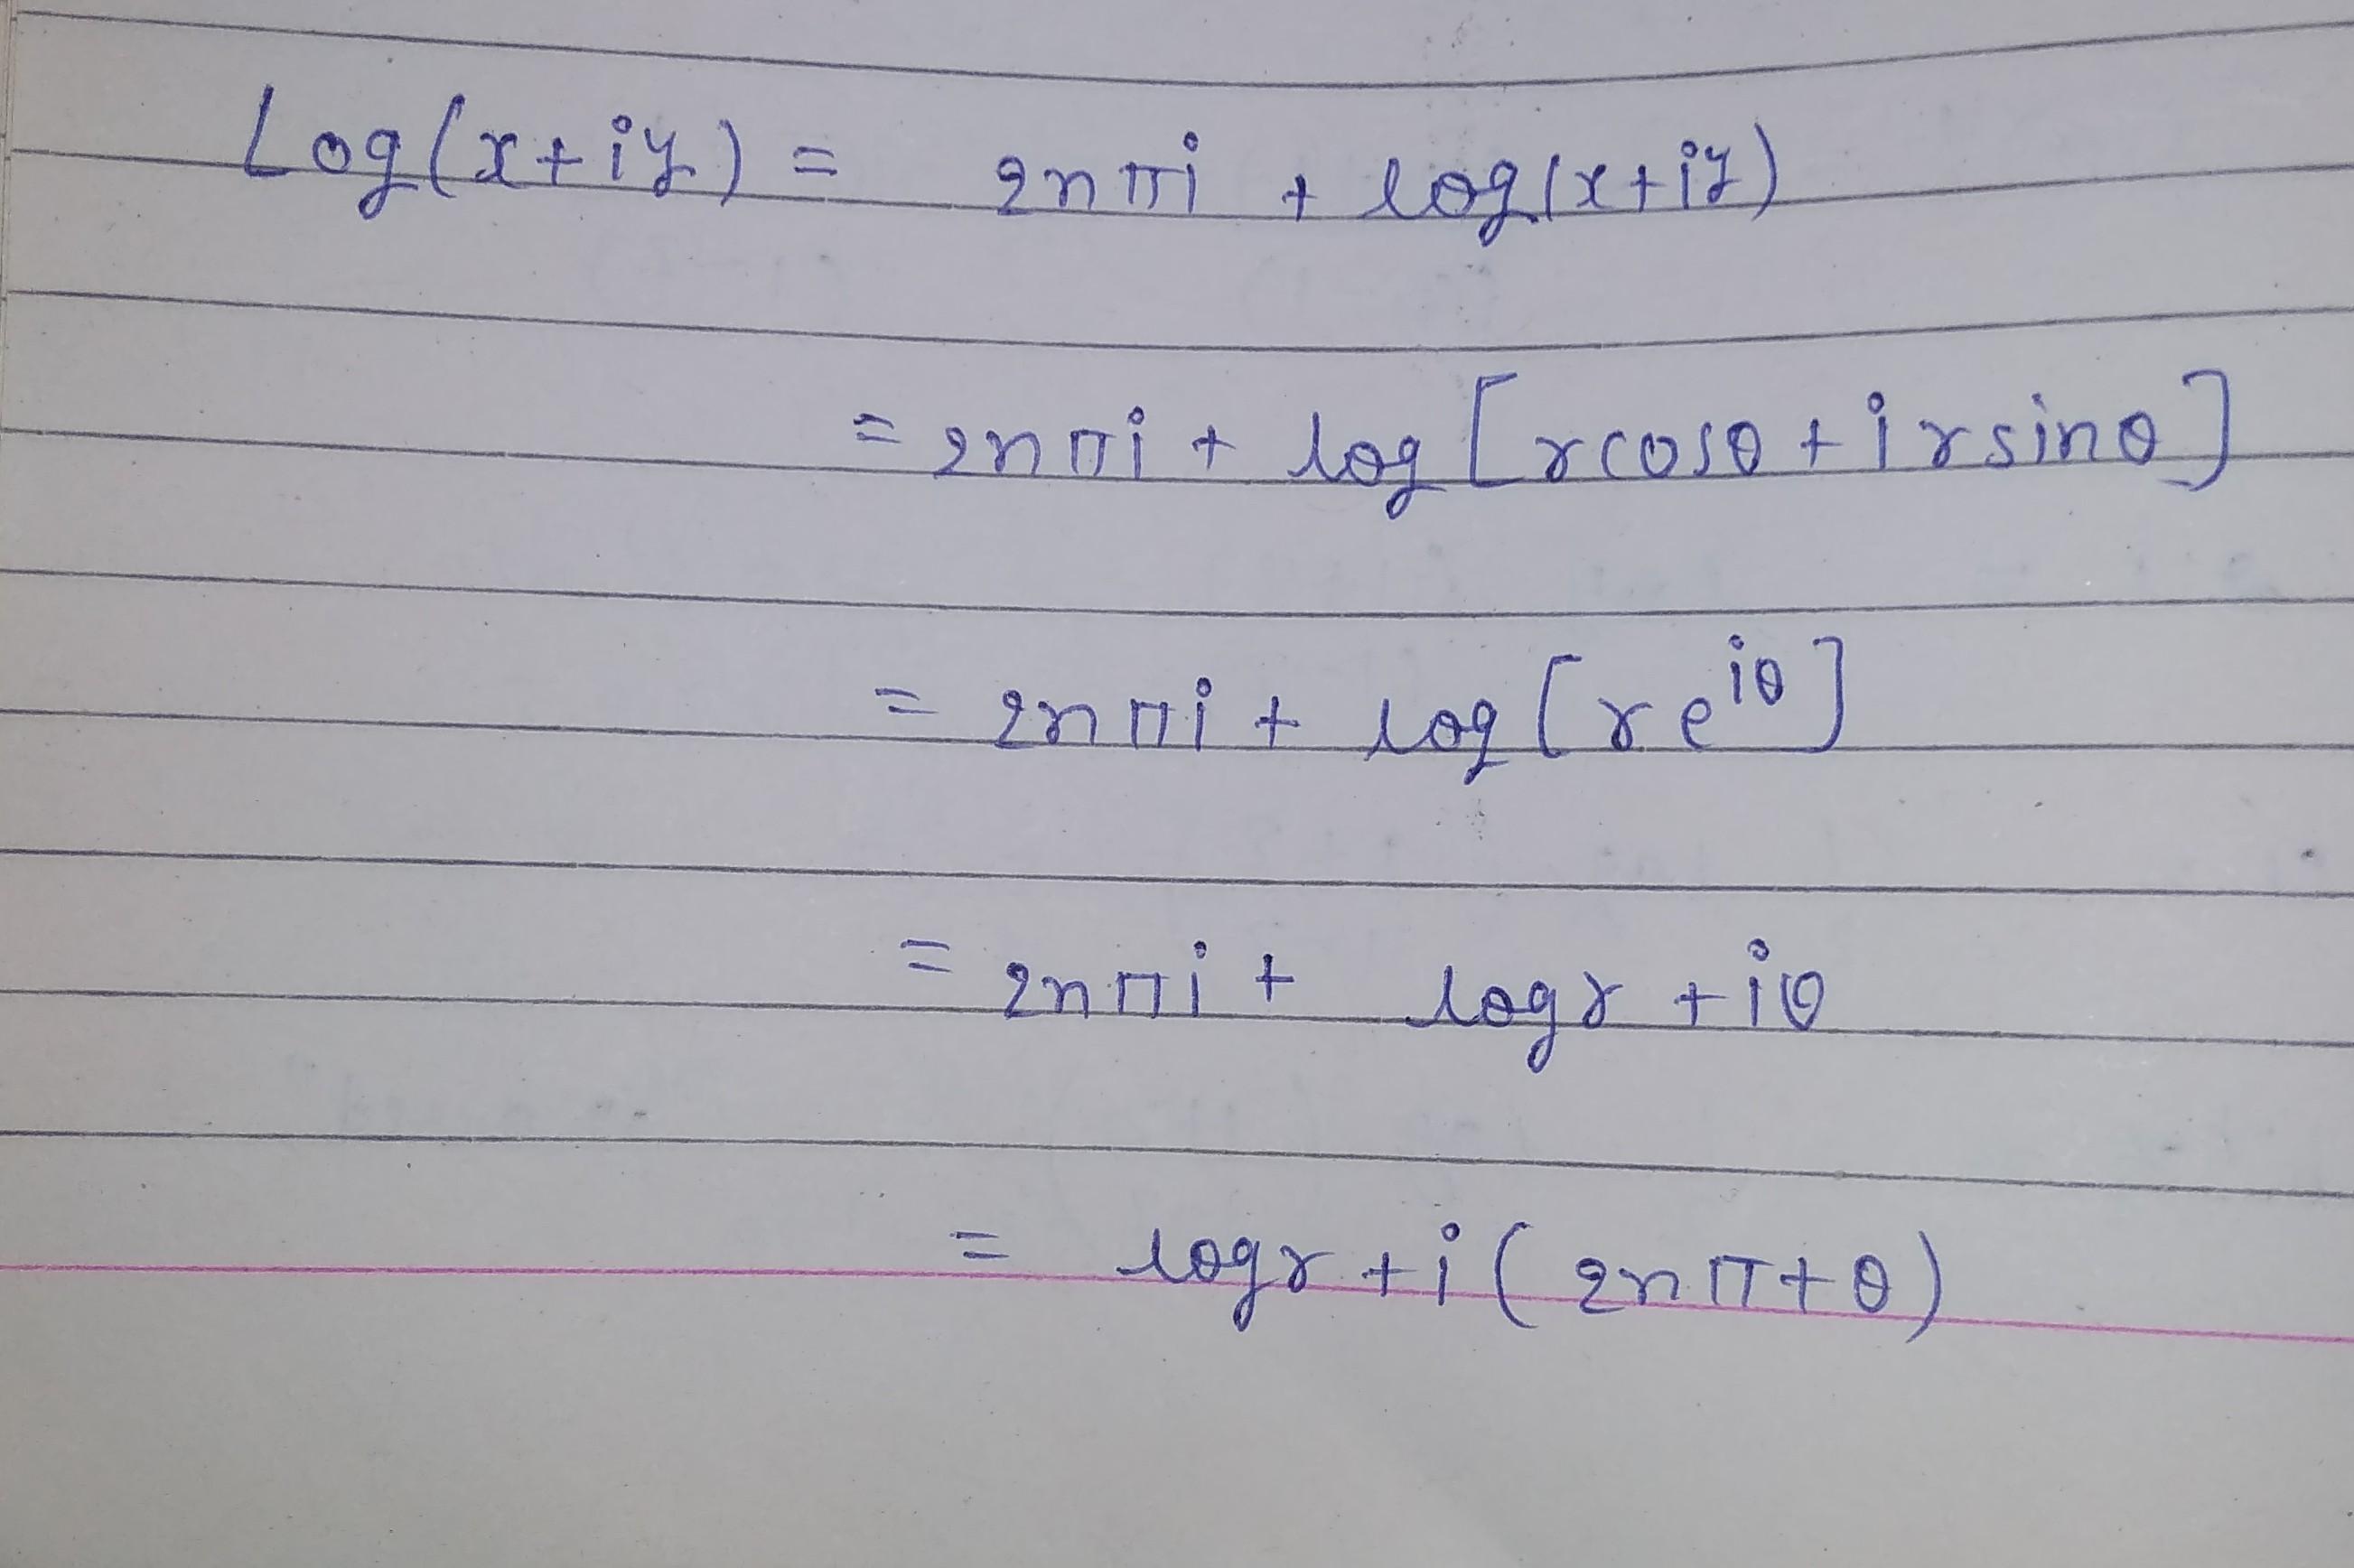 Log(x+iy) = 2nπi + log(x+iy)
= 2nπi + log [rcosθ + i rsinθ]
= 2nπi + log [re^{iθ}]
= 2nπi + logr + iθ
= logr + i(2nπ+θ)